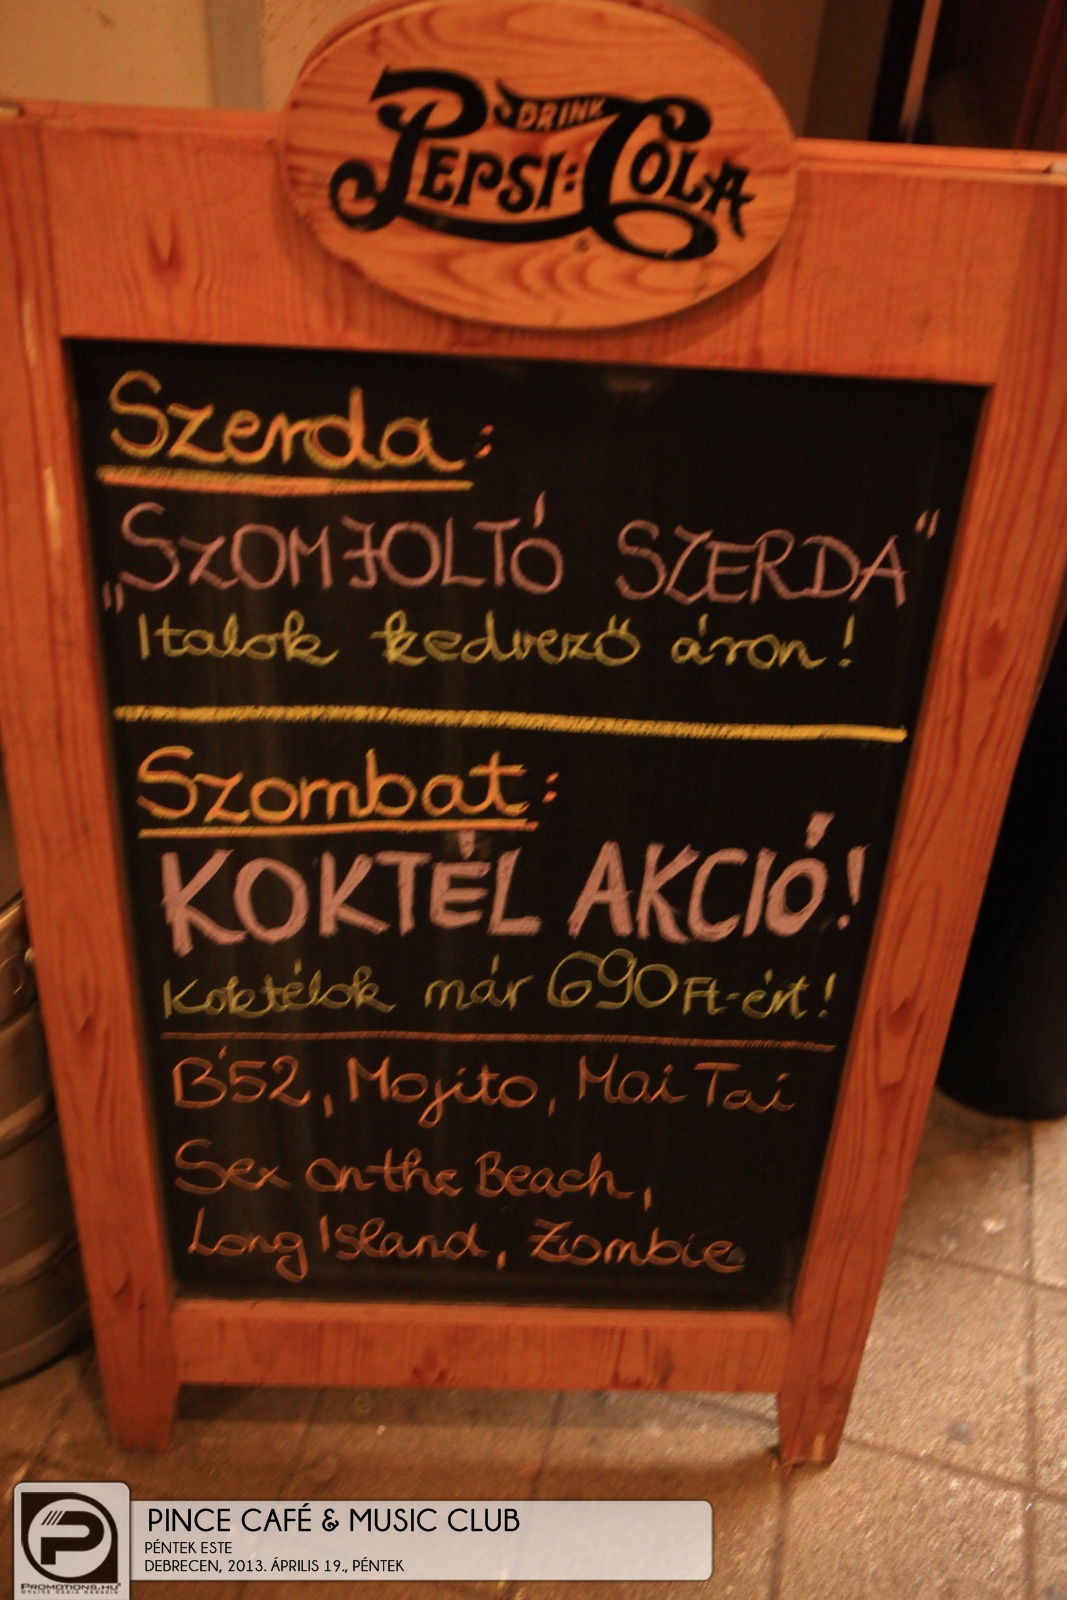 DRINK
PEPSI:COLA
®
Szerda:
„SZOMJOLTÓ SZERDA"
Italok kedvező áron!
Szombat:
KOKTÉL AKCIÓ!
Koktélok már 690 Ft-ért!
B'52, Mojito, Mai Tai
Sex on the Beach,
Long Island, Zombie
PINCE CAFÉ & MUSIC CLUB
PÉNTEK ESTE
DEBRECEN, 2013. ÁPRILIS 19., PÉNTEK
PROMOTIONS.HU